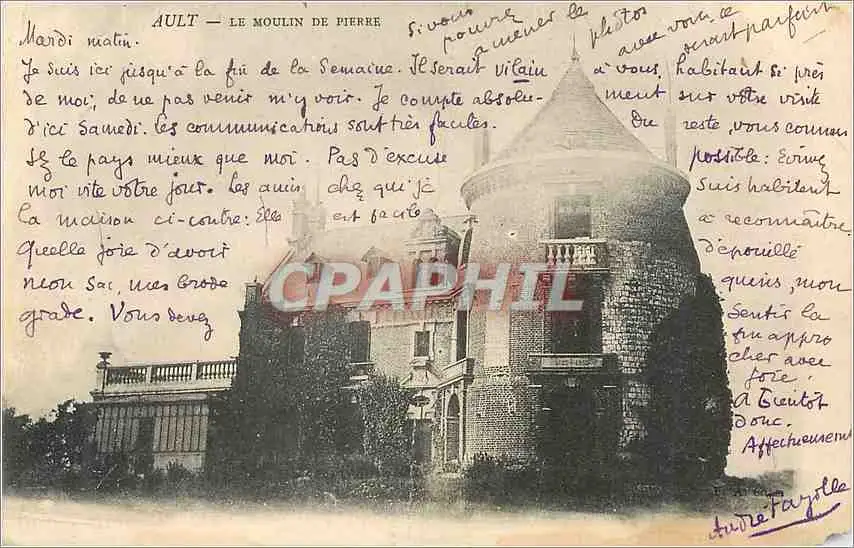 AULT — LE MOULIN DE PIERRE
Si vous
pouvez
amener le
photos
avec vous, ce
serait parfait
Mardi matin.
Je suis ici jusqu'à la fin de la Semaine. Il serait vilain à vous, habitant si près
de moi, de ne pas venir m'y voir. Je compte absolu- ment sur votre visite
d'ici Samedi. Les communications sont très faciles. Du reste, vous connais
sez le pays mieux que moi. Pas d'excuse possible: Ecrivez
moi vite votre jour. Les amis chez qui j' suis habitent
la maison ci-contre: Elle est facile à reconnaître.
Quelle joie d'avoir d'épouillé
mon sac, mes
grade. Vous devez
mon
sentir la
fin appro
cher avec
joie.
A bientôt
donc.
Affectueusement
André Fayolle
CPARAMA